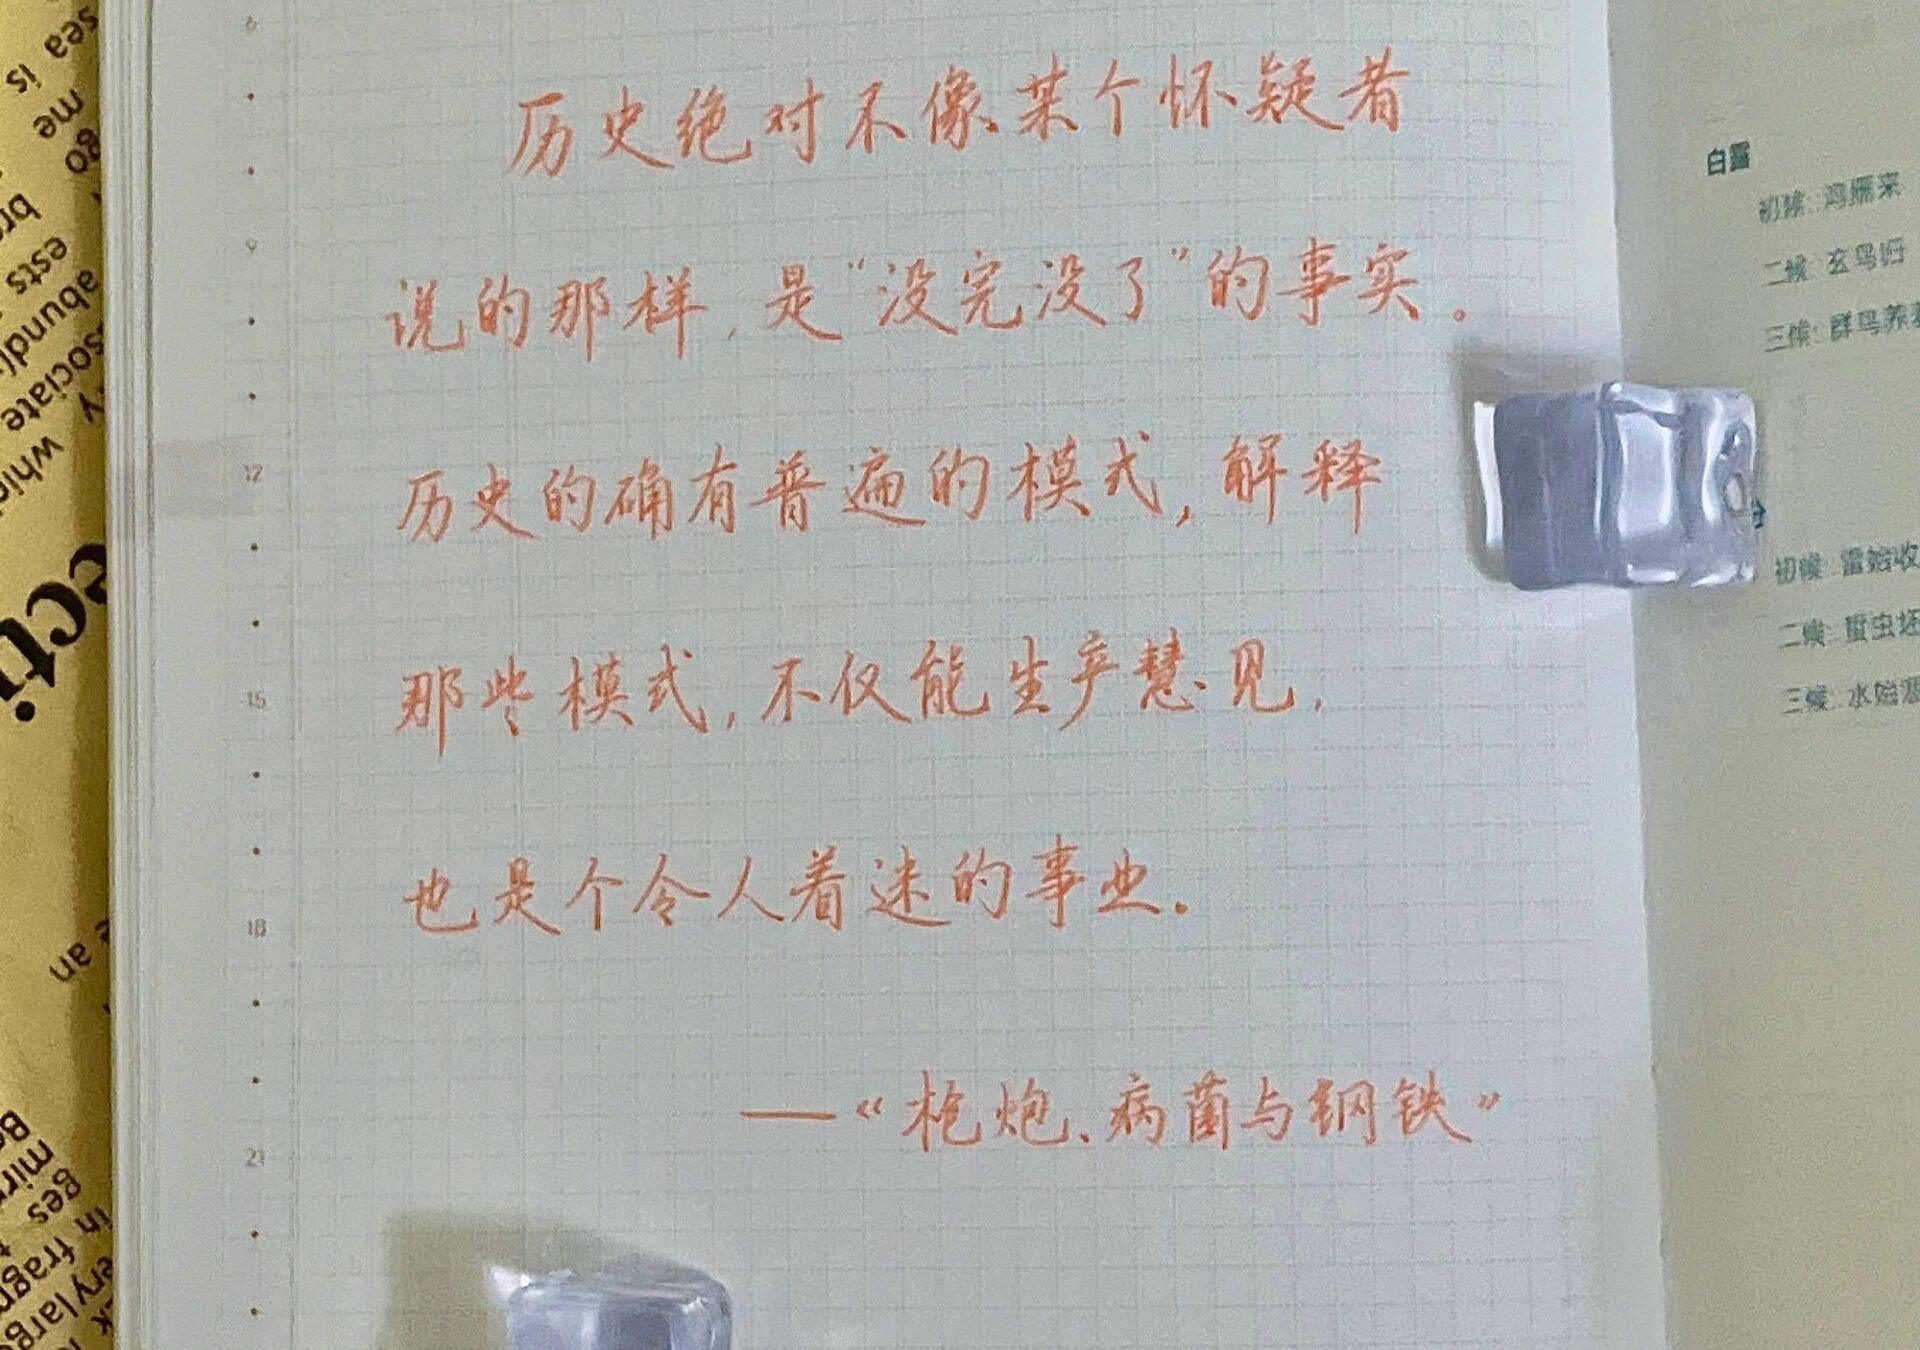 历史绝对不像某个怀疑者
说的那样，是“没完没了”的事实。
历史的确有普遍的模式，解释
那些模式，不仅能生产慧见，
也是个令人着迷的事业。
——《枪炮、病菌与钢铁》
6
9
12
15
18
21
白露
初候：鸿雁来
二候：玄鸟归
三候：群鸟养
初候：雷始收
二候：蛰虫坯
三候：水始涸
sea is
me
go
ests
abund
sociate
whic
ecti
an
mir
ges
in
fragm
ery large